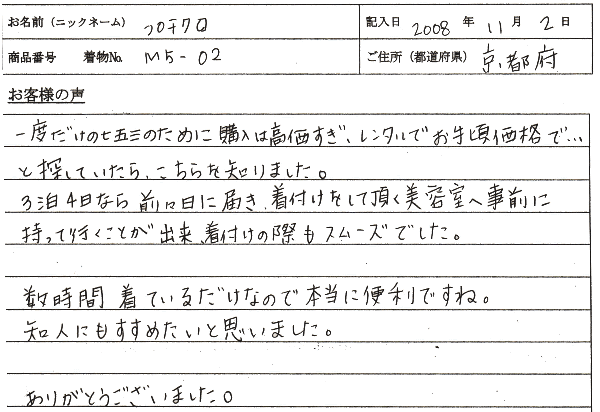 お名前（ニックネーム） コロ干クロ 記入日 2008 年 11 月 2 日
商品番号 着物No. M5-02 ご住所（都道府県） 京都府
お客様の声
一度だけの七五三のために購入は高価すぎ、レンタルでお手頃価格で…
と探していたら、こちらを知りました。
3泊4日なら前々日に届き、着付けをして頂く美容室へ事前に
持って行くことが出来、着付けの際もスムーズでした。
数時間着ているだけなので本当に便利ですね。
知人にもすすめたいと思いました。
ありがとうございました。